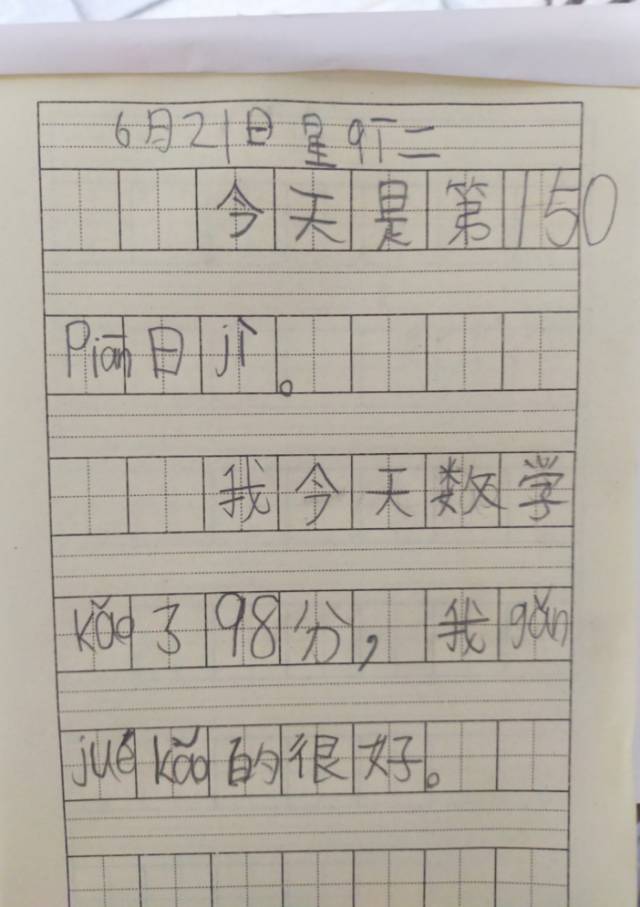 6月21日 星qī二
今天是第150
Piān日jì。
我今天数学
kǎo了98分，我gǎn
jué kǎo的很好。